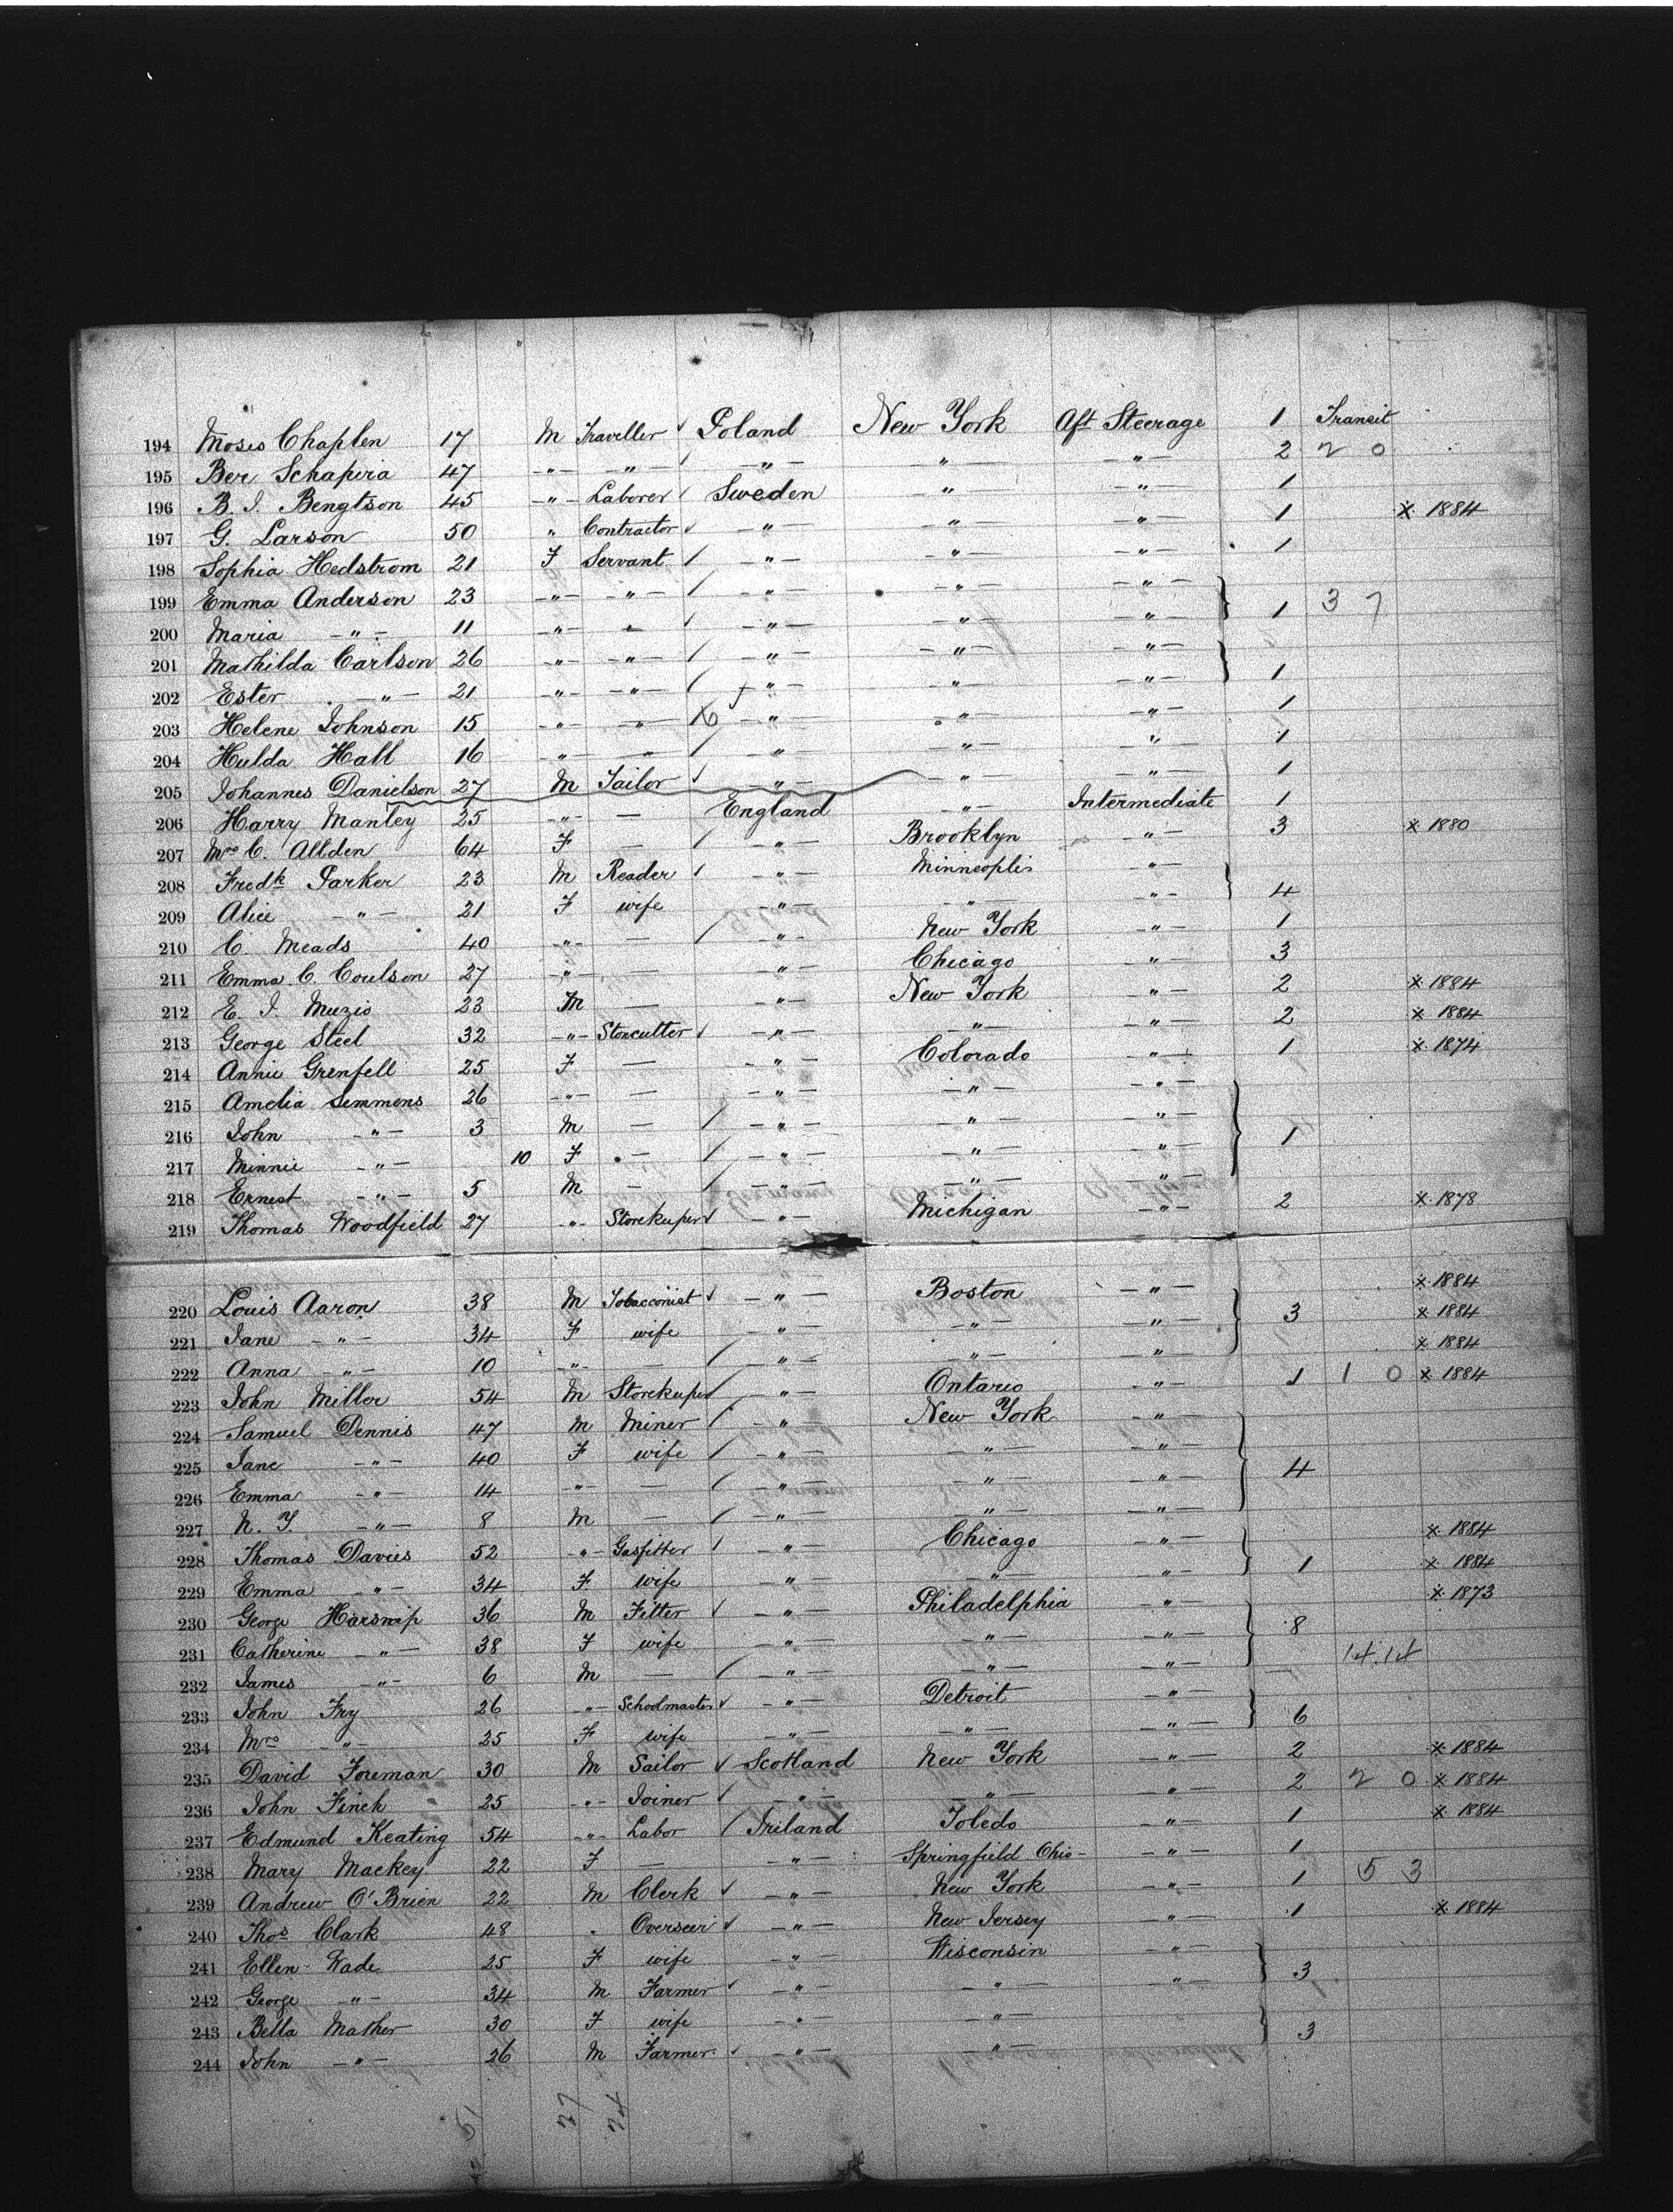 194 Moses Chaplen 17 M Traveller Poland New York Aft Steerage 1 Transit
195 Ber Schapira 47 -"- -"- -"- -"- -"- 2 2 0
196 B. I. Bengtson 45 -"- Laborer Sweden -"- -"- 1
197 G. Larson 50 " Contractor -"- -"- -"- 1 x 1884
198 Sophia Hedstrom 21 F Servant -"- -"- -"- 1
199 Emma Anderson 23 -"- -"- -"- -"- -"-
200 Maria -"- 11 -"- -"- -"- -"- -"- 1 3 7
201 Mathilda Carlson 26 -"- -"- -"- -"- -"-
202 Ester -"- 21 -"- -"- -"- -"- -"- 1
203 Helene Johnson 15 -"- -"- -"- -"- -"- 1
204 Hulda Hall 16 -"- -"- -"- -"- -"- 1
205 Johannes Danielson 27 M Tailor -"- -"- -"- 1
206 Harry Manley 25 -"- — England -"- Intermediate 1
207 Mrs C. Allden 64 F — -"- Brooklyn -"- 3 x 1880
208 Fredk Parker 23 M Reader -"- Minneoplis -"-
209 Alice -"- 21 F wife -"- -"- -"- 4
210 C. Meads 40 -"- — -"- New York -"- 1
211 Emma C. Coulson 27 -"- — -"- Chicago -"- 3
212 E. I. Muzio 23 M — -"- New York -"- 2 x 1884
213 George Steel 32 -"- Stonecutter -"- -"- -"- 2 x 1884
214 Annie Grenfell 25 F — -"- Colorado -"- 1 x 1874
215 Amelia Semmens 26 -"- — -"- -"- -"-
216 John -"- 3 M — -"- -"- -"- 1
217 Minnie -"- 10 F — -"- -"- -"-
218 Ernest -"- 5 M — -"- -"- -"-
219 Thomas Woodfield 27 -"- Storekeeper -"- Michigan -"- 2 x 1878
220 Louis Aaron 38 M Tobacconist -"- Boston -"- x 1884
221 Jane -"- 34 F wife -"- -"- -"- 3 x 1884
222 Anna -"- 10 -"- — -"- -"- -"- x 1884
223 John Miller 54 M Storekeeper -"- Ontario -"- 1 1 0 x 1884
224 Samuel Dennis 47 M Miner -"- New York -"-
225 Jane -"- 40 F wife -"- -"- -"- 4
226 Emma -"- 14 -"- — -"- -"- -"-
227 N. Y. -"- 8 M — -"- -"- -"-
228 Thomas Davies 52 -"- Gasfitter -"- Chicago -"- x 1884
229 Emma -"- 34 F wife -"- -"- -"- 1 x 1884
230 George Harsnip 36 M Fitter -"- Philadelphia -"- x 1873
231 Catherine -"- 38 F wife -"- -"- -"- 8
232 James -"- 6 M — -"- -"- -"- 14.14
233 John Fry 26 -"- Schoolmaster -"- Detroit -"-
234 Mrs -"- 25 F wife -"- -"- -"- 6
235 David Foreman 30 M Sailor Scotland New York -"- 2 x 1884
236 John Finch 25 -"- Joiner -"- -"- -"- 2 2 0 x 1884
237 Edmund Keating 54 -"- Labor Ireland Toledo -"- 1 x 1884
238 Mary Mackey 22 F — -"- Springfield Ohio -"- 1
239 Andrew O'Brien 22 M Clerk -"- New York -"- 1 5 3
240 Thos Clark 48 Overseer -"- New Jersey -"- 1 x 1884
241 Ellen Wade 25 F wife -"- Wisconsin -"-
242 George -"- 34 M Farmer -"- -"- -"- 3
243 Bella Mather 30 F wife -"- -"-
244 John -"- 26 M Farmer -"- -"- 3